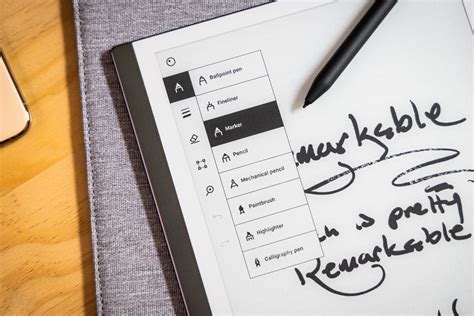 Ballpoint pen
Fineliner
Marker
Pencil
Mechanical pencil
Paintbrush
Highlighter
Calligraphy pen
markable
is pretty
Remarkable